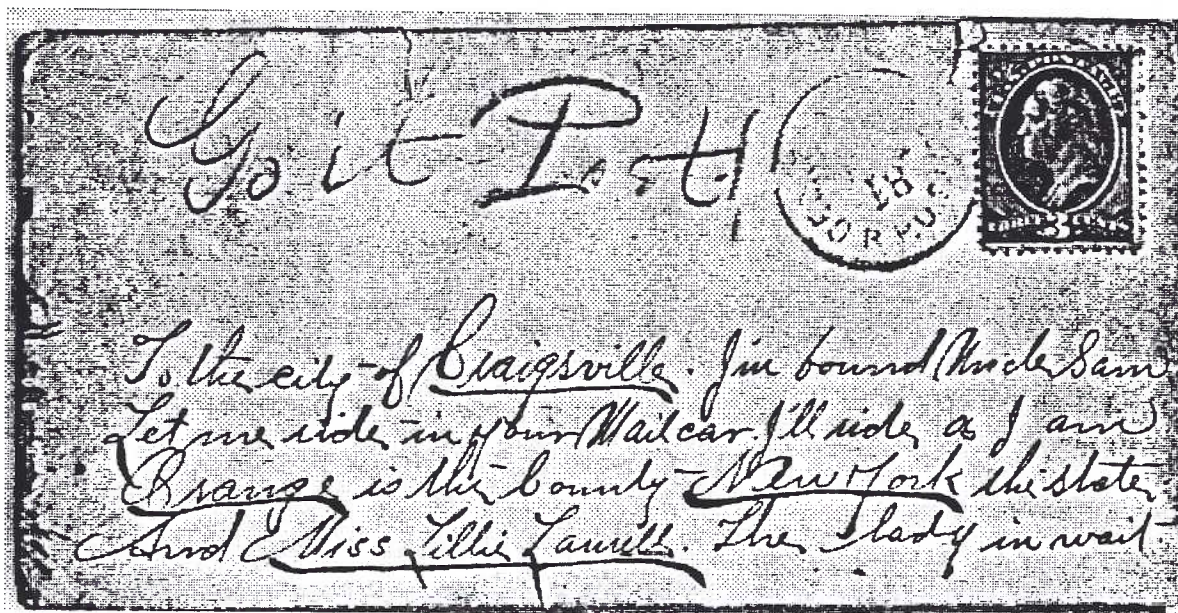 Go it Post!
U.S. POSTAGE
18
R.P.O.
3
To the city of Craigsville. I'm bound Uncle Sam
Let me ride in your Mail car. I'll ride as I am
Orange is the County New York the state
And Miss Lillie Laurell. The lady in wait.